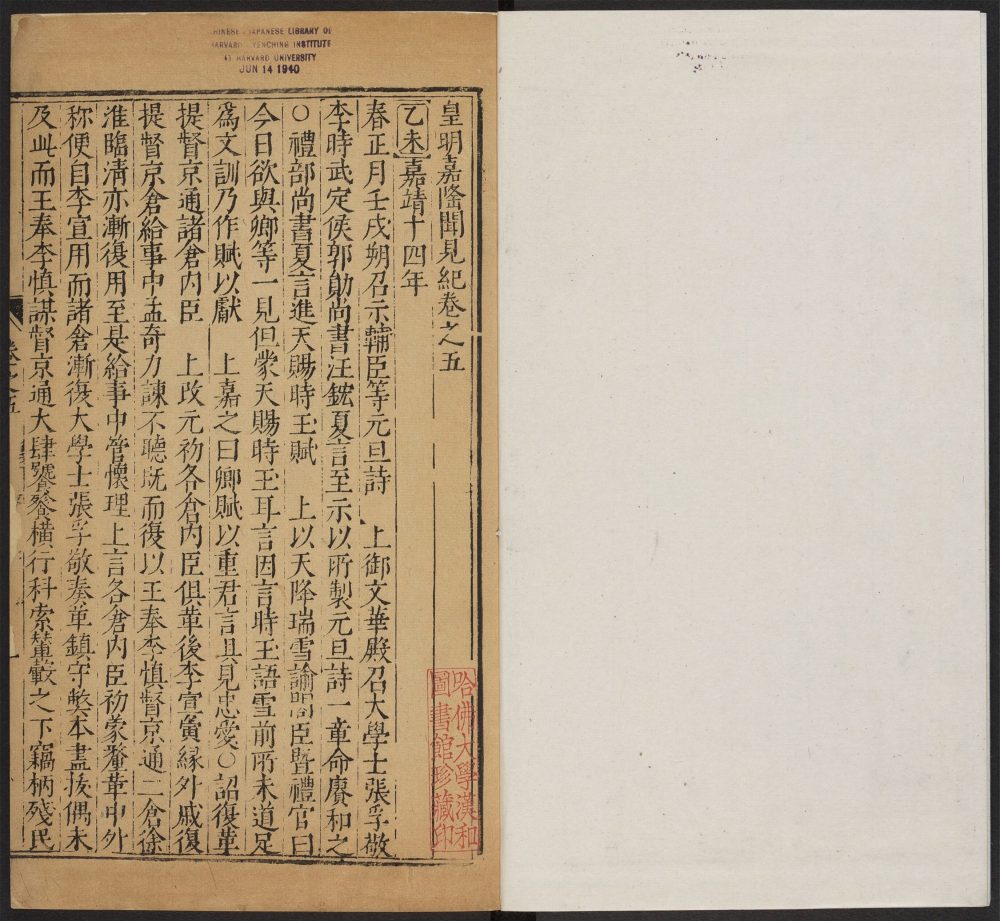 CHINESE - JAPANESE LIBRARY OF
HARVARD - YENCHING INSTITUTE
AT HARVARD UNIVERSITY
JUN 14 1940
皇明嘉隆聞見紀卷之五
乙未嘉靖十四年
春正月壬戌朔召示輔臣等元旦詩 上御文華殿召大學士張孚敬
李時武定侯郭勛尚書汪鋐夏言至示以所製元旦詩一章命賡和之
○禮部尚書夏言進天賜時玉賦 上以天降瑞雪諭閣臣暨禮官曰
今日欲與卿等一見但蒙天賜時玉耳言因言時玉語雪前所未道足
爲文訓乃作賦以獻 上嘉之曰卿賦以重君言具見忠愛○詔復革
提督京通諸倉内臣 上改元初各倉内臣俱革後李宣夤緣外戚復
提督京倉給事中孟奇力諫不聽旣而復以王奉李慎督京通二倉徐
淮臨清亦漸復用至是給事中管懷理上言各倉内臣初蒙釐革中外
称便自李宣用而諸倉漸復大學士張孚敬奏革鎮守獘本盡拔偶未
及此而王奉李慎謀督京通大肆饕餮橫行科索輦轂之下竊柄殘民
哈佛大學漢和
圖書館珍藏印